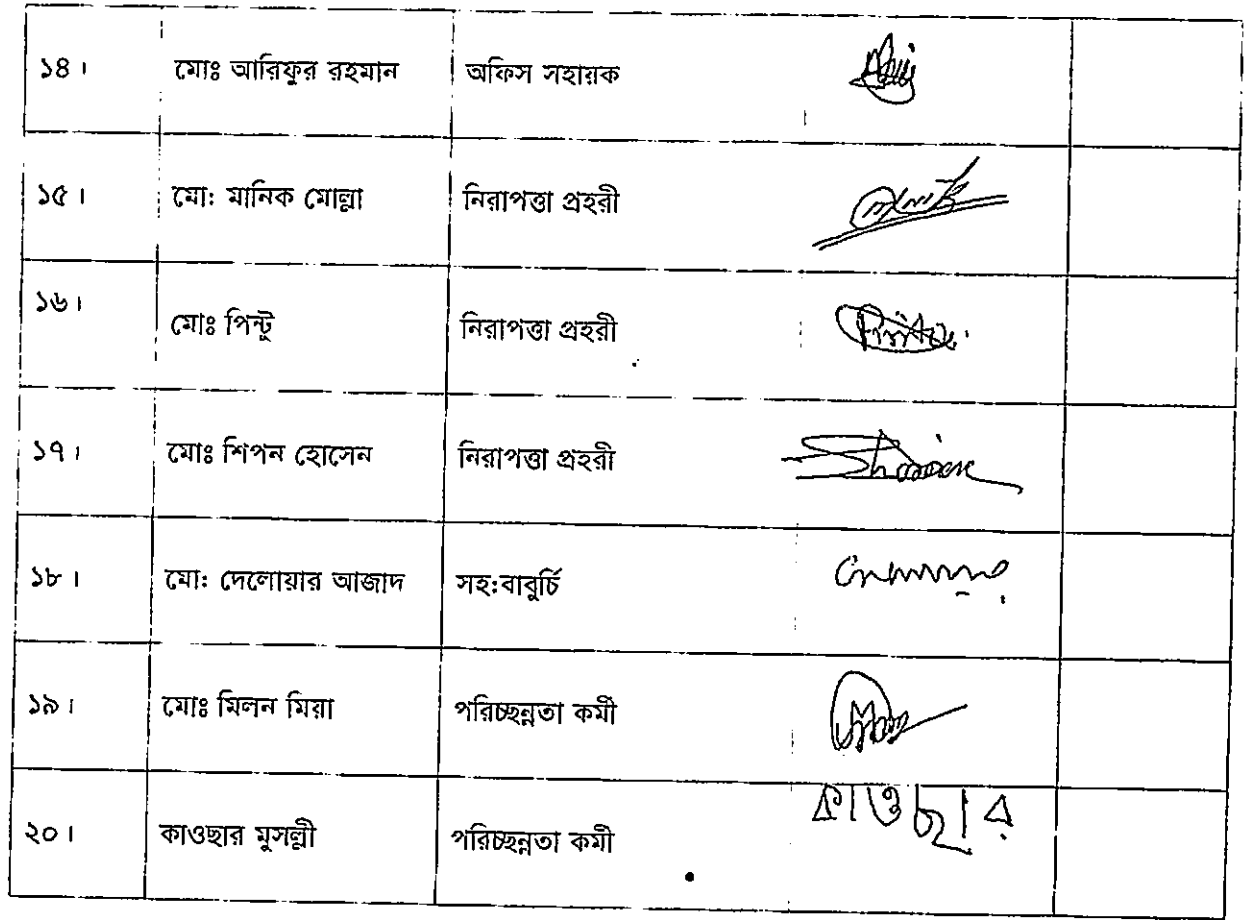 ১৪। মোঃ আরিফুর রহমান অফিস সহায়ক
১৫। মো: মানিক মোল্লা নিরাপত্তা প্রহরী
১৬। মোঃ পিন্টু নিরাপত্তা প্রহরী Pintu
১৭। মোঃ শিপন হোসেন নিরাপত্তা প্রহরী
১৮। মো: দেলোয়ার আজাদ সহ:বাবুর্চি
১৯। মোঃ মিলন মিয়া পরিচ্ছন্নতা কর্মী
২০। কাওছার মুসল্লী পরিচ্ছন্নতা কর্মী কাওছার